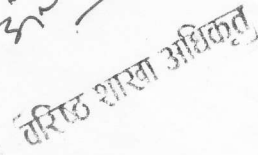 वरिष्ठ शाखा अधिकृत